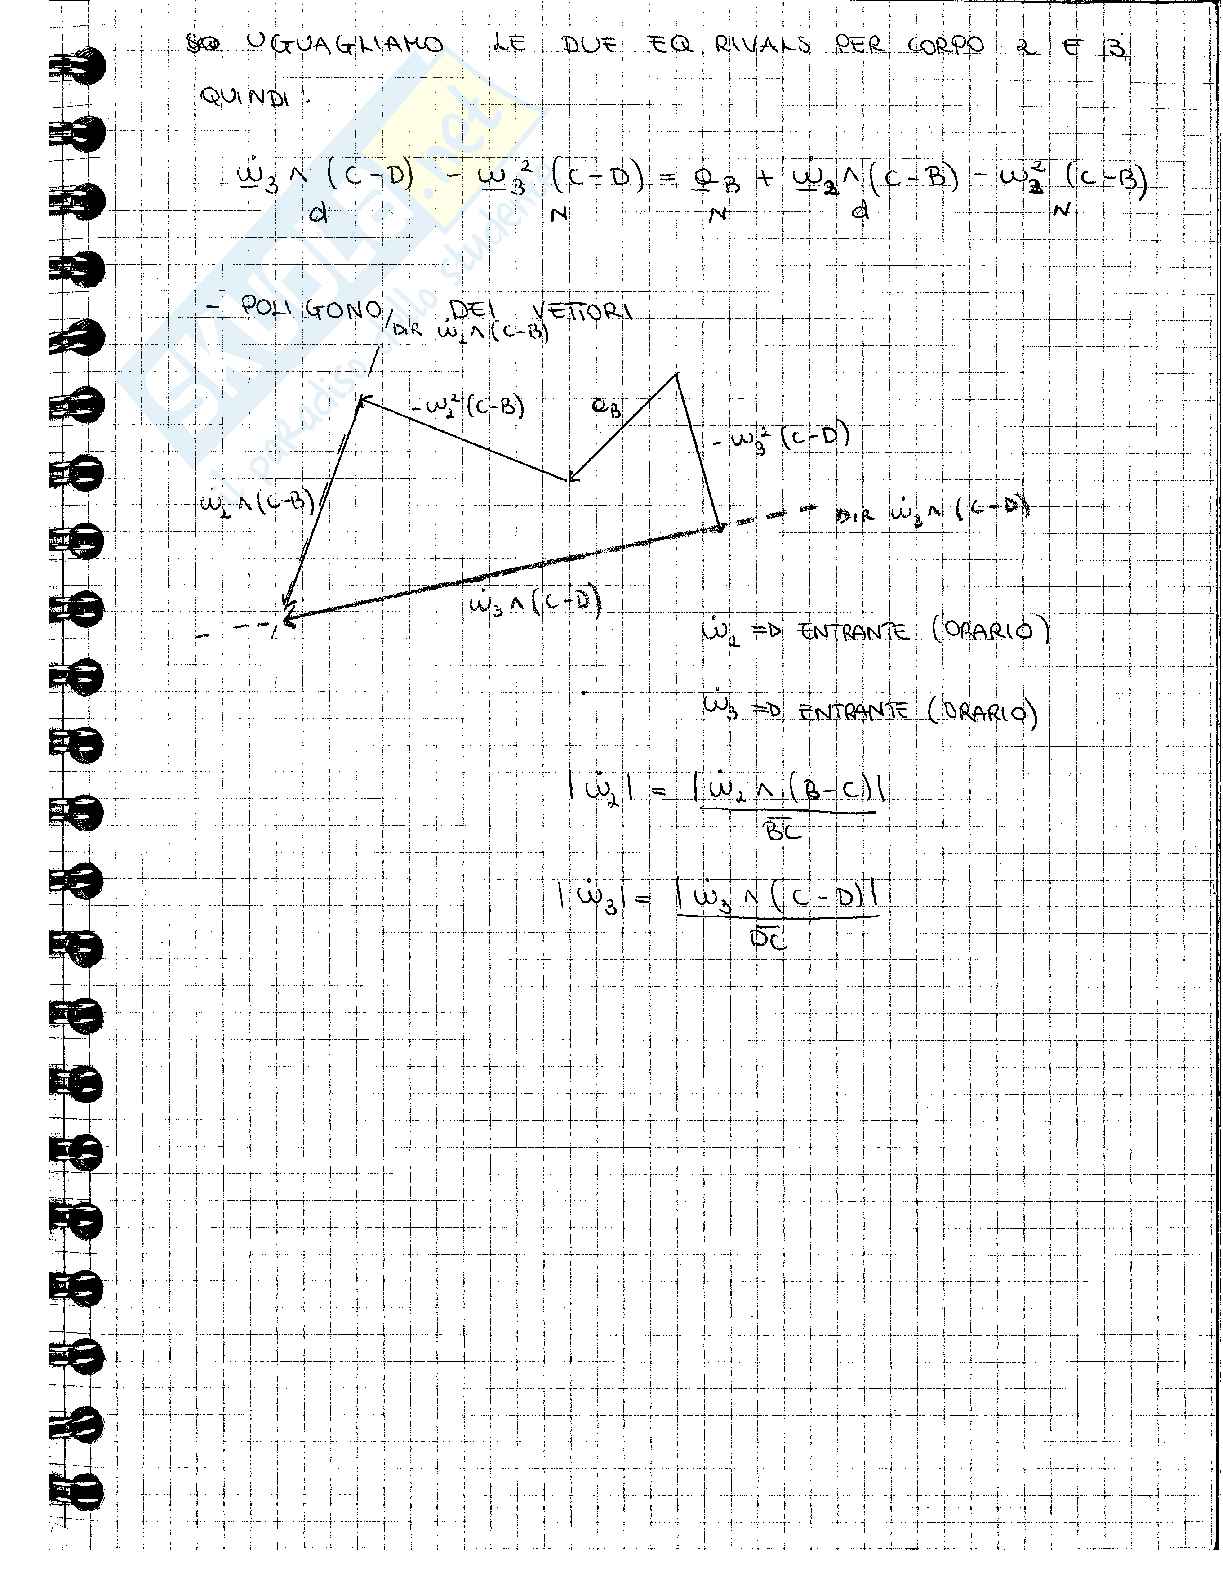 UGUAGLIAMO LE DUE EQ. RIVALS PER CORPO 2 E 3
QUINDI:
ω̇₃ ∧ (C-D) - ω₃² (C-D) = a_B + ω̇₂ ∧ (C-B) - ω₂² (C-B)
d N N d N
- POLIGONO DEI VETTORI
DIR ω̇₂ ∧ (C-B)
-ω₂² (C-B)
a_B
-ω₃² (C-D)
ω̇₂ ∧ (C-B)
DIR ω̇₃ ∧ (C-D)
ω̇₃ ∧ (C-D)
ω̇₂ => ENTRANTE (ORARIO)
ω̇₃ => ENTRANTE (ORARIO)
|ω̇₂| = |ω̇₂ ∧ (B-C)|
BC
|ω̇₃| = |ω̇₃ ∧ (C-D)|
DC
SKUOLA.net